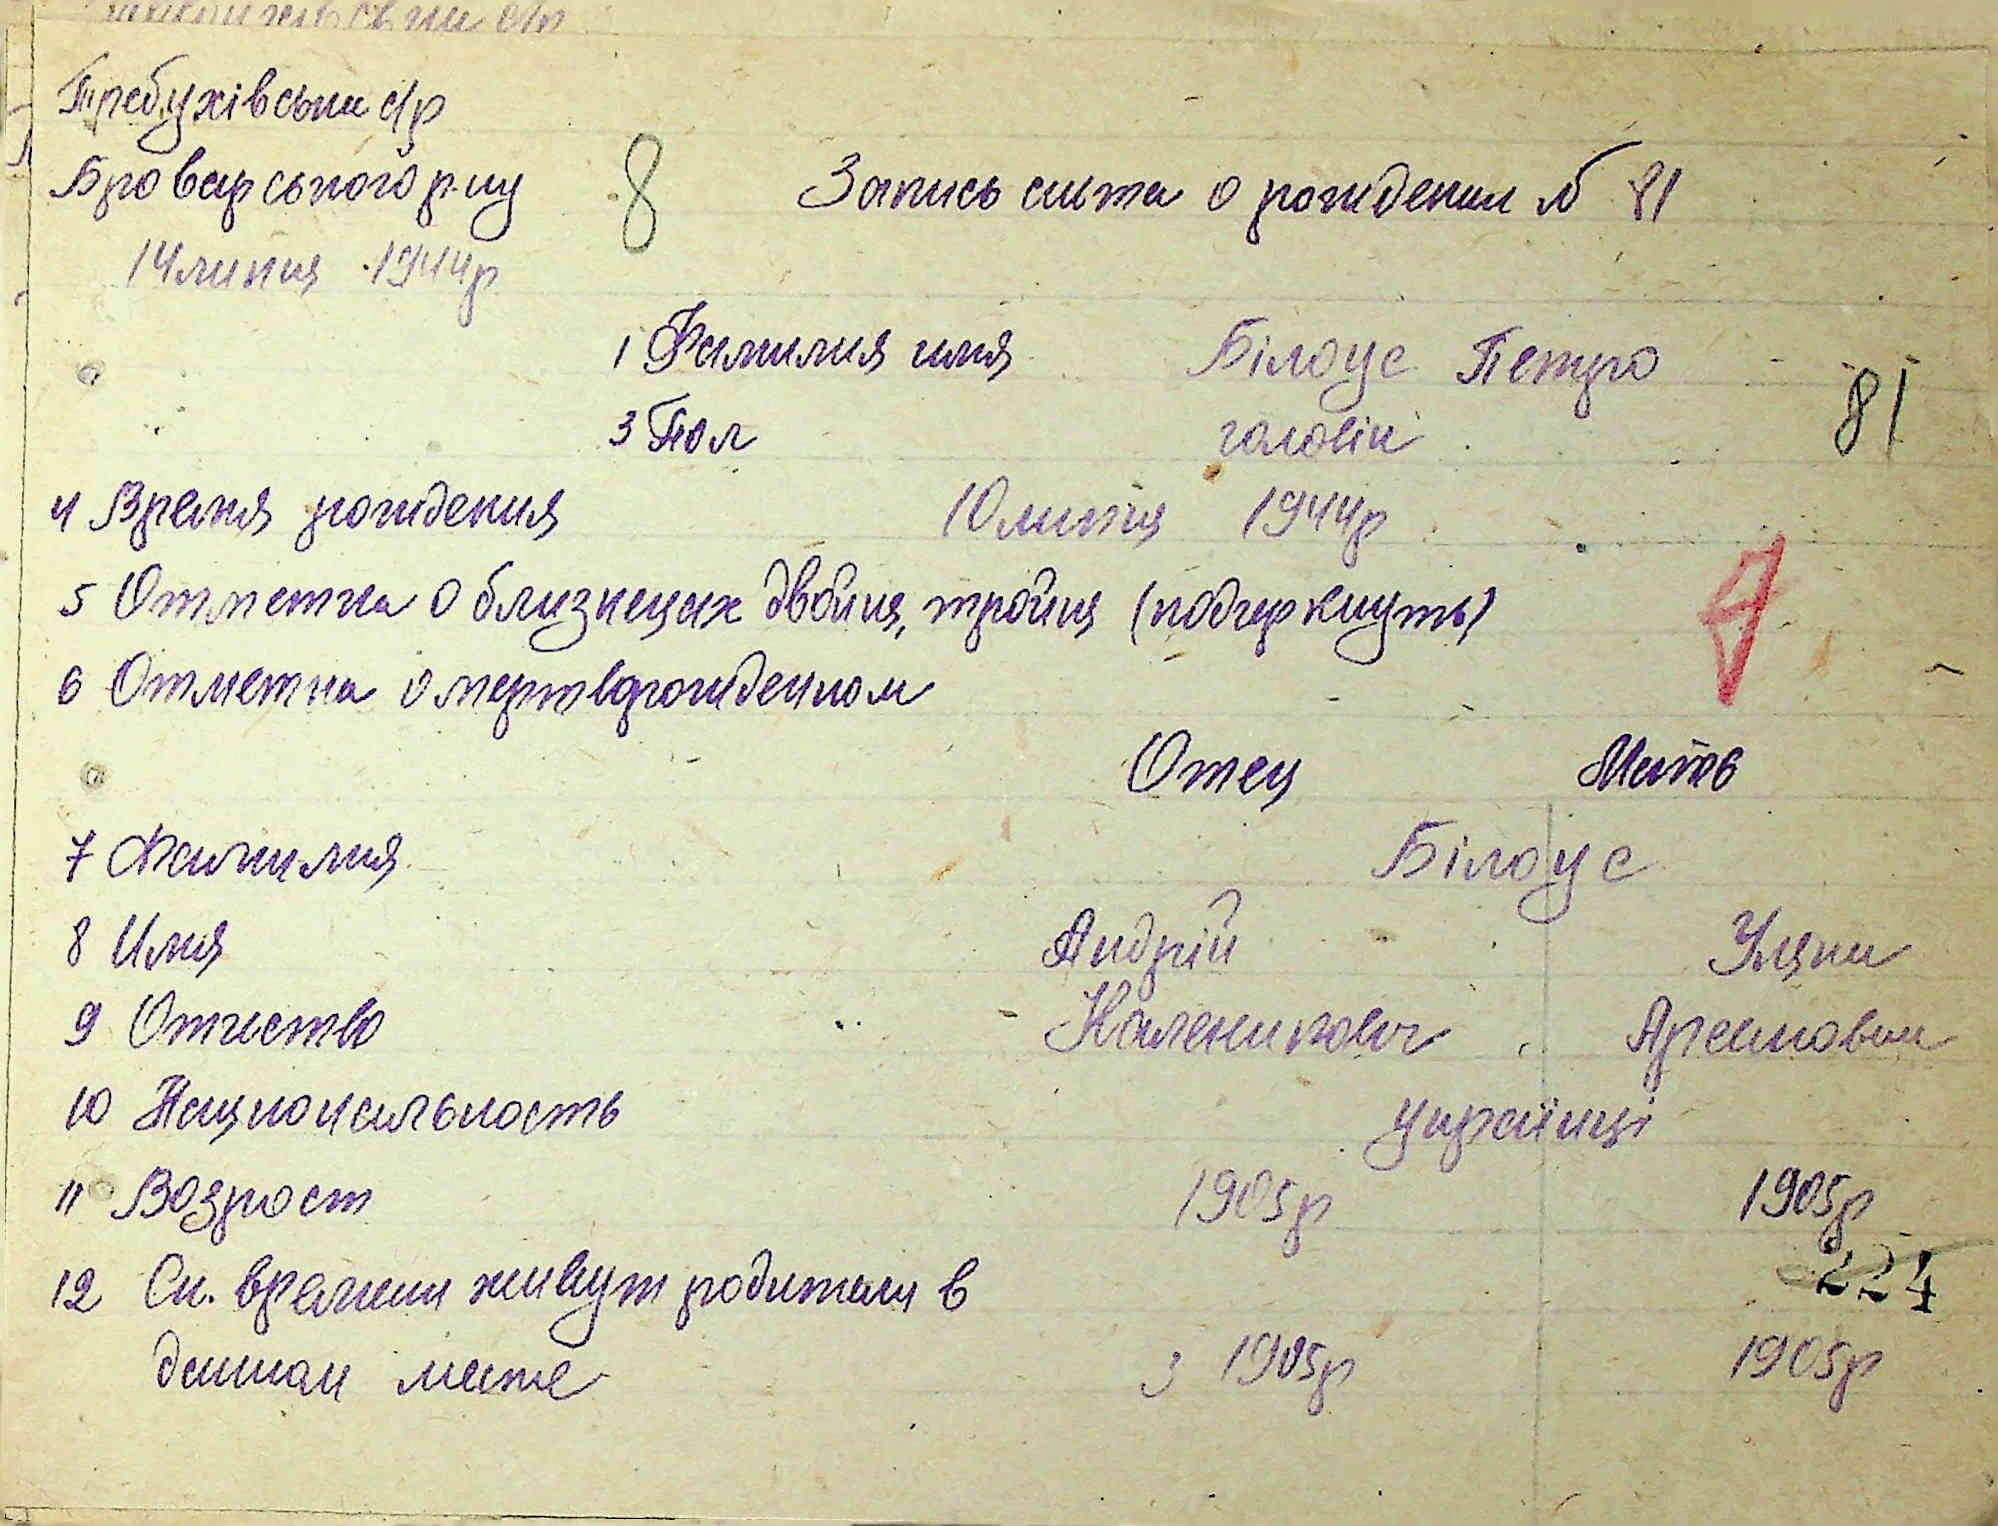 Требухівська с/р
Броварського р-ну
8
Запись акта о рождении № 81
14 липня 1944р
1 Фамилия имя Білоус Петро
81
3 Пол чоловік
4 Время рождения 10 липня 1944р
5 Отметка о близнецах двойня, тройня (подчеркнуть)
6 Отметка о мертворожденном
Отец Мать
7 Фамилия Білоус
8 Имя Андрій Уляна
9 Отчество Каленикович Арсеновна
10 Национальность українці
11 Возраст 1905р 1905р
224
12 Ск. времени живут родители в
данном месте з 1905р 1905р